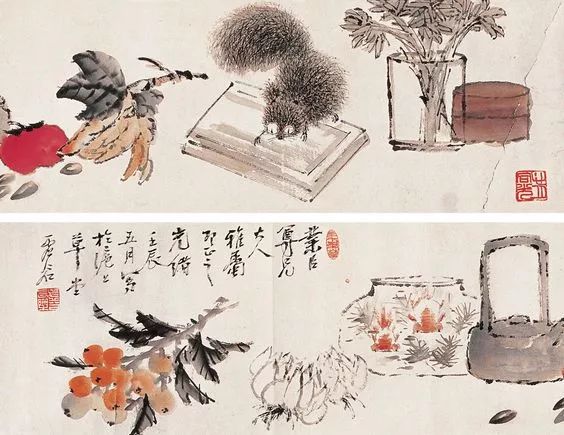 葉臣
尊兄
大人
雅屬
即正之
光緒
壬辰
五月寫
於滬上
草堂
虛谷